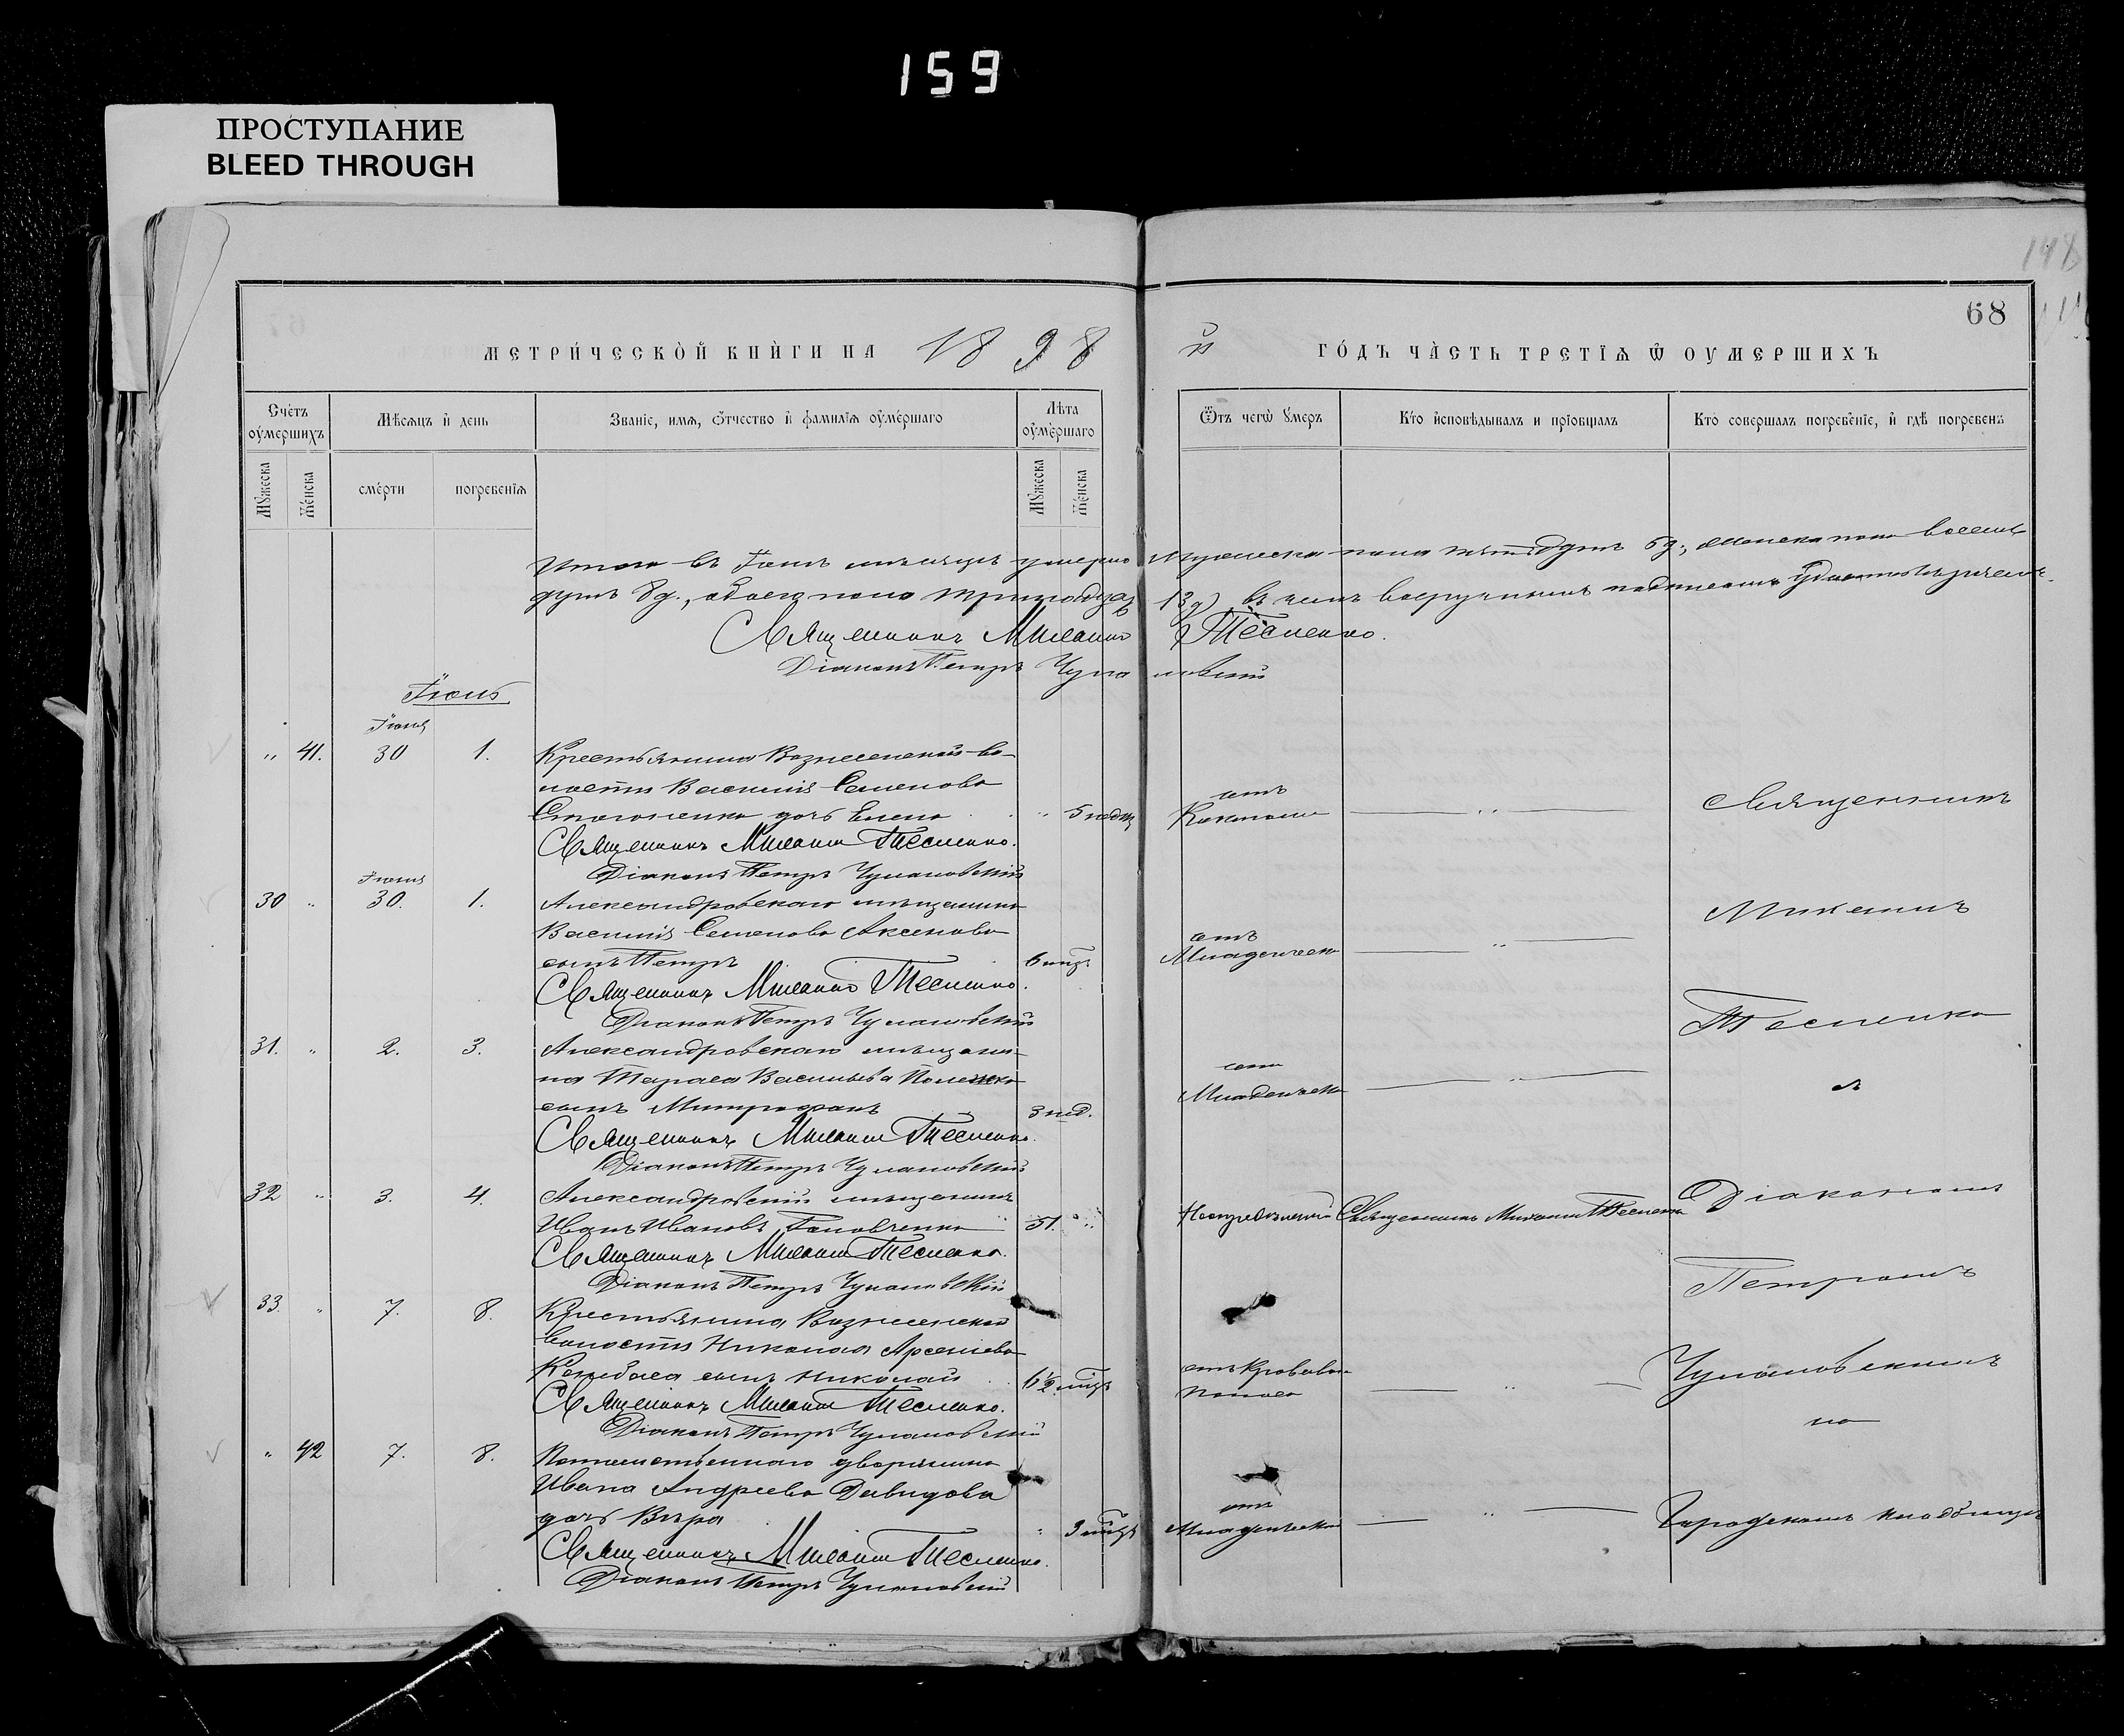 159
ПРОСТУПАНИЕ
BLEED THROUGH
148
68
МЕТРИ́ЧЕСКОЙ КНИ́ГИ НА 1898 й ГО́ДЪ ЧА́СТЬ ТРЕТІѦ Ѿ ОУМЕРШИХЪ
Счётъ оумершихъ
Мѣсяцъ и день
Званіе, имя, отчество и фамилія оумершаго
Лѣта оумершаго
Отъ чего умеръ
Кто исповѣдывалъ и пріобщалъ
Кто совершалъ погребеніе, и гдѣ погребенъ
Мужеска
Женска
смерти
погребенія
Мужеска
Женска
Итого въ Іюнѣ мѣсяцѣ умерло мужеска пола пять душъ 5 д., женска пола восемь
душъ 8 д., обоего пола тринадцать 13 д) въ чемъ
Священникъ Михаилъ Тесленко.
Діаконъ Петръ Чулановскій
Іюль
Іюня
" 41. 30 1. Крестьянина Вознесенской во-
лости Василія Семенова
дочь Елена " 5 недѣ отъ Коклюша "
Священникъ Михаилъ Тесленко.
Діаконъ Петръ Чулановскій
Іюня
30 " 30. 1. Александровскаго мѣщанина
Василія Семенова Аксенова
сынъ Петръ 6 мцъ отъ Младенческ "
Священникъ Михаилъ Тесленко.
Діаконъ Петръ Чулановскій
31. " 2. 3. Александровскаго мѣщани-
на Тараса Васильева
сынъ Митрофанъ 3 нед. отъ Младенческ "
Священникъ Михаилъ Тесленко.
Діаконъ Петръ Чулановскій
32 " 3. 4. Александровскій мѣщанинъ
Иванъ Ивановъ 51. " Священникъ Михаилъ Тесленко
Священникъ Михаилъ Тесленко.
Діаконъ Петръ Чулановскій
33. " 7. 8. Крестьянина Вознесенской
волости Николая Арсеніева
сынъ Николай 6 1/2 мцъ отъ Кроваваго поноса "
Священникъ Михаилъ Тесленко.
Діаконъ Петръ Чулановскій
" 42 7. 8. Потомственнаго дворянина
Ивана Андреева Давидова
дочь Вѣра " 3 мцъ отъ Младенческой "
Священникъ Михаилъ Тесленко.
Діаконъ Петръ Чулановскій
Священникъ
Михаилъ
Тесленко
съ
Діакономъ
Петромъ
Чулановскимъ
на
Городскомъ кладбищѣ